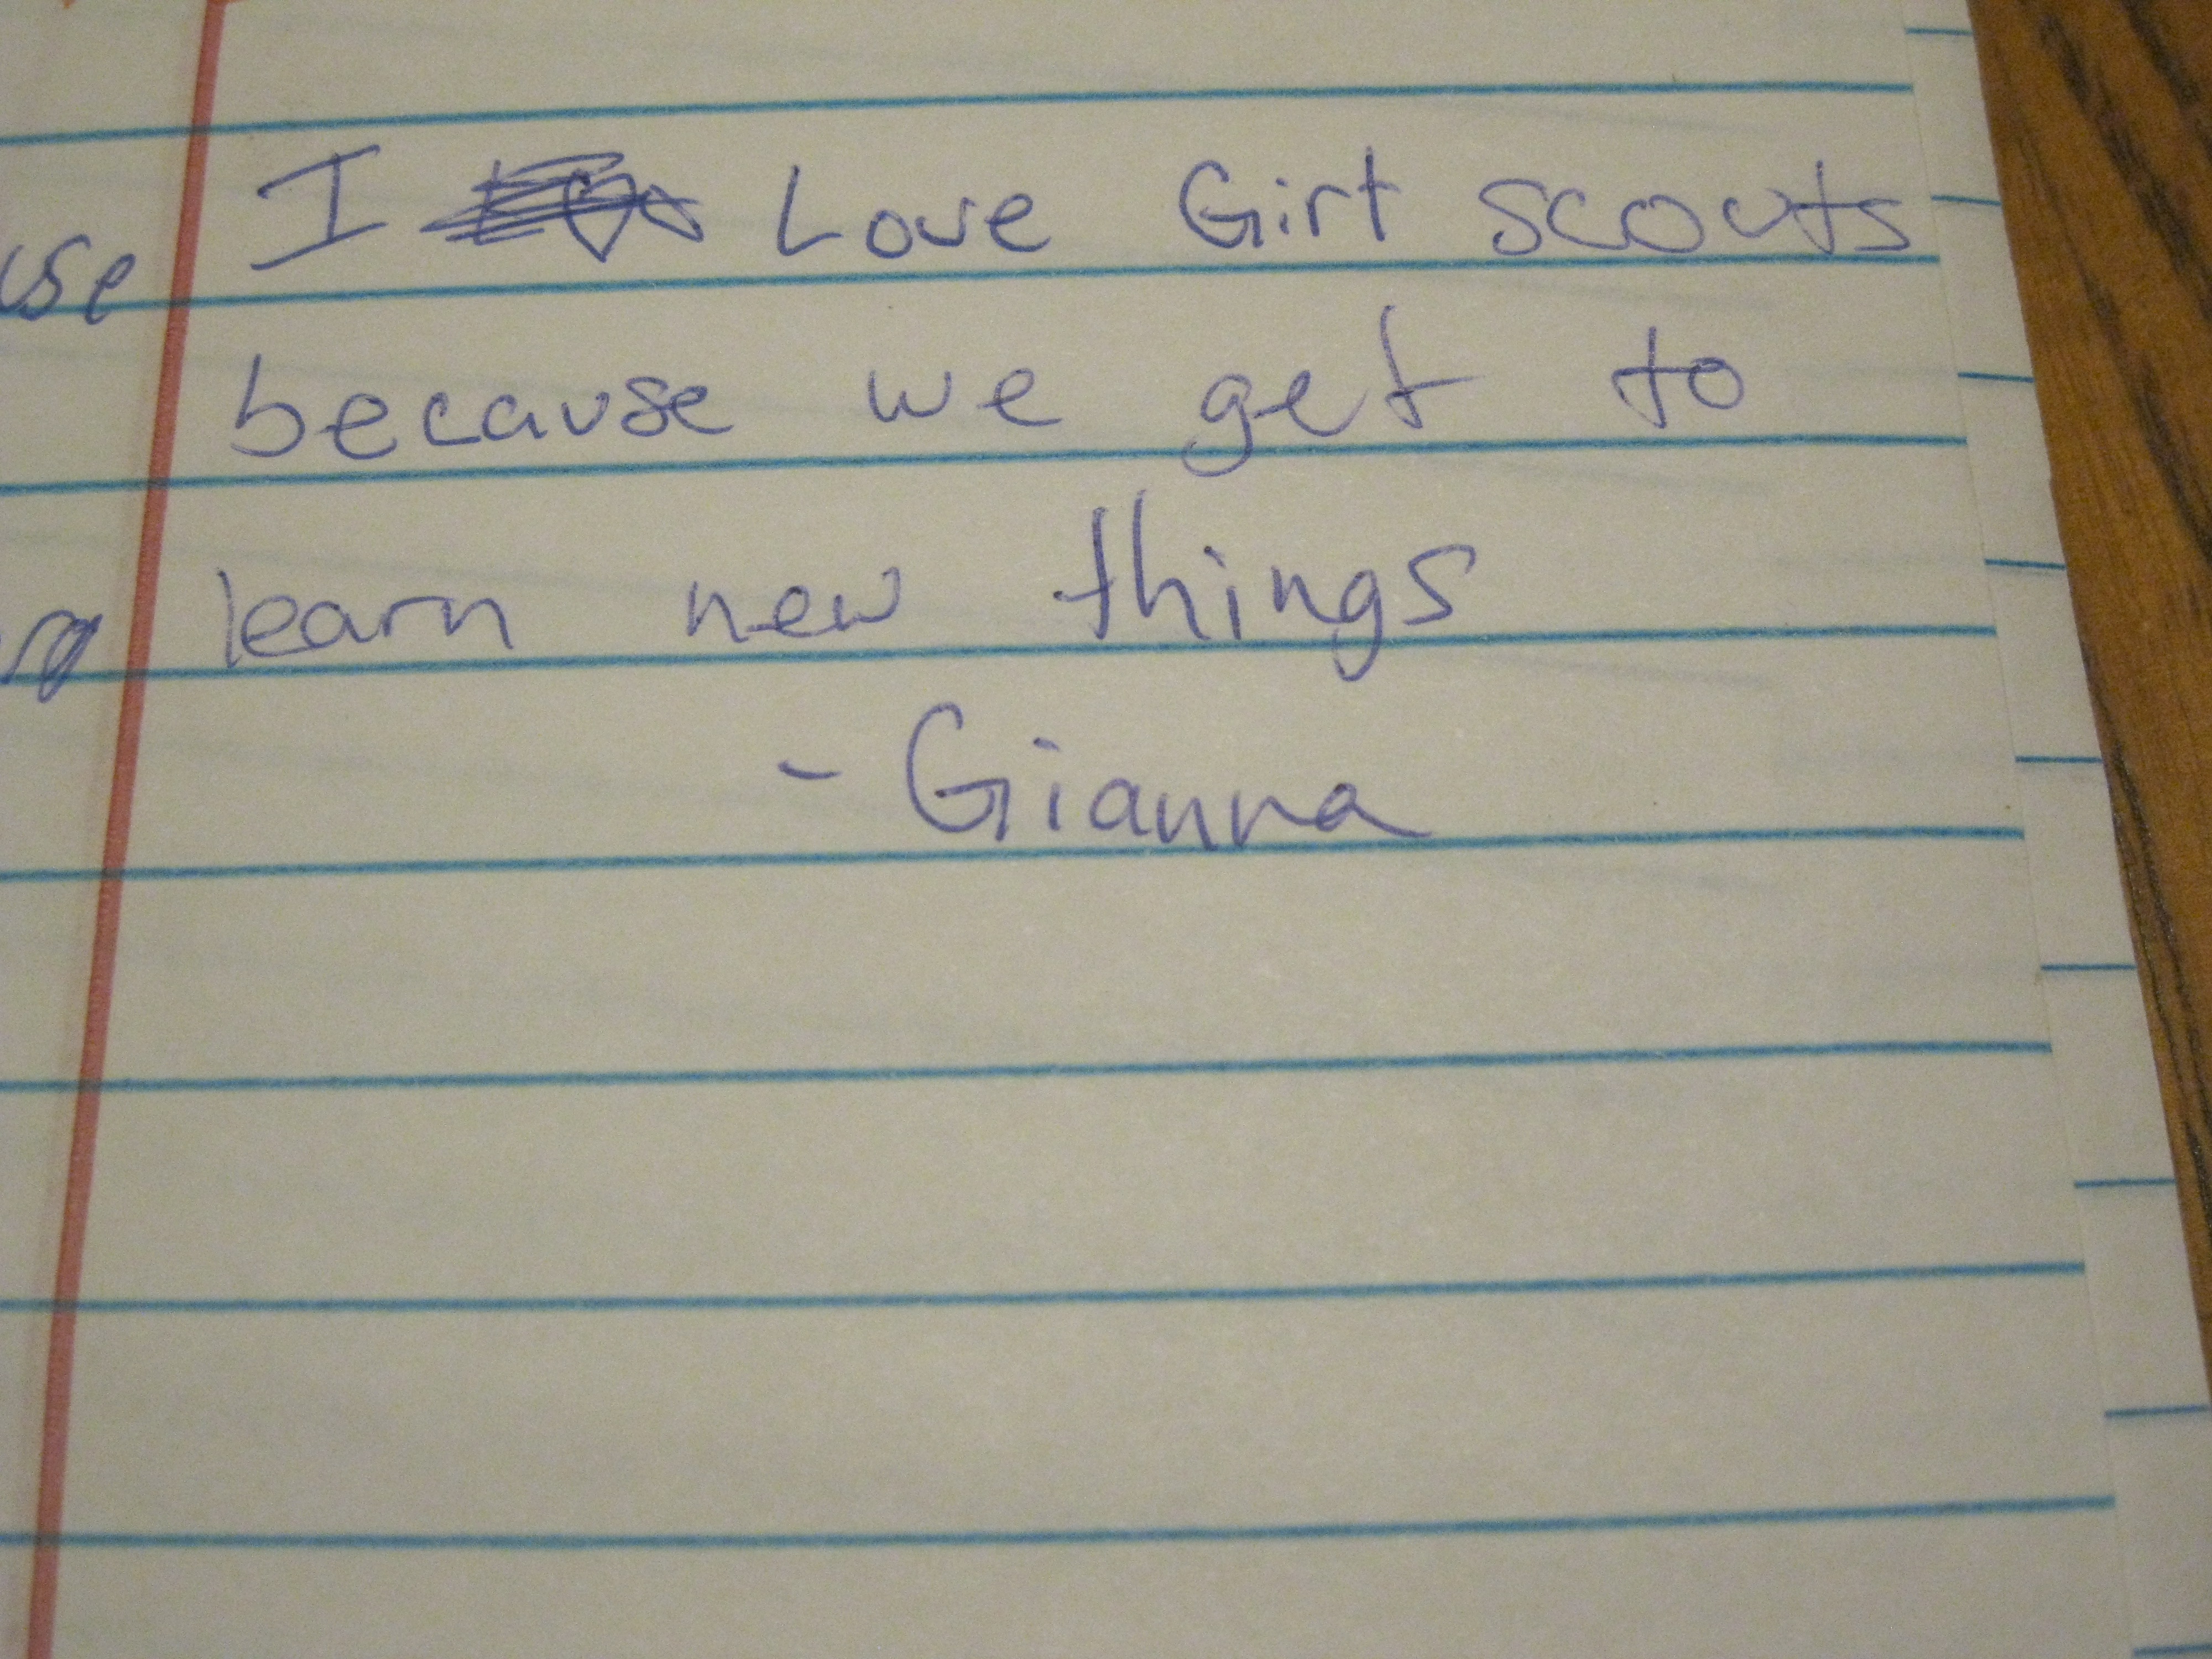 I Love Girl scouts
because we get to
learn new things
- Gianna